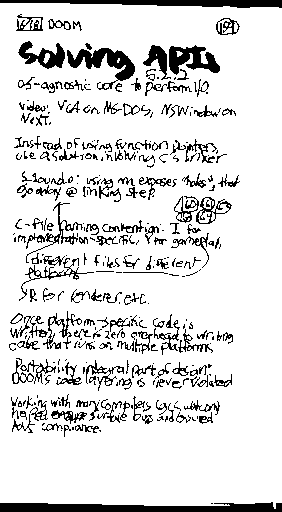 DOOM
Solving APIs
5.2.2
OS-agnostic core to perform I/O
Video: VGA on MS-DOS, NSWindow on
NeXT.
Instead of using function pointers,
use a solution involving C's linker
using nm exposes "holes", that
go away @ linking step
C-file naming convention: I for
implementation-specific, for gameplay,
different files for different
platforms
R for renderer, etc.
Once platform-specific code is
written, there is zero overhead to writing
code that runs on multiple platforms
Portability integral part of design:
DOOM's code layering is never violated
Working with many compilers
helped surface bugs and ensured
compliance.